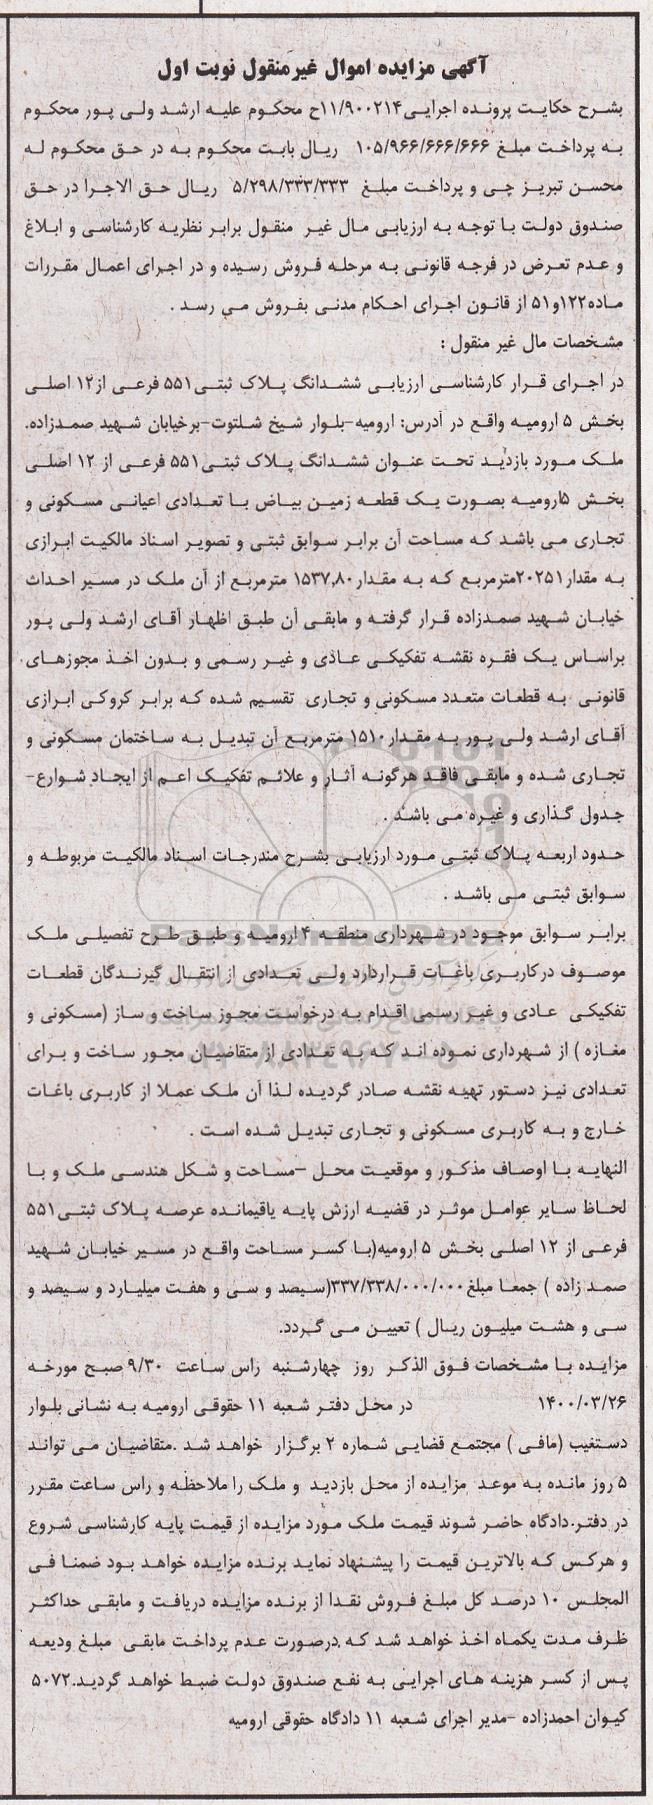 آگهی مزایده اموال غیرمنقول نوبت اول
بشرح حکایت پرونده اجرایی۱۱/۹۰۰۲۱۴ح محکوم علیه ارشد ولی پور محکوم
به پرداخت مبلغ ۱۰۵/۹۶۶/۶۶۶/۶۶۶ ریال بابت محکوم به در حق محکوم له
محسن تبریز چی و پرداخت مبلغ ۵/۲۹۸/۳۳۳/۳۳۳ ریال حق الاجرا در حق
صندوق دولت با توجه به ارزیابی مال غیر منقول برابر نظریه کارشناسی و ابلاغ
و عدم تعرض در فرجه قانونی به مرحله فروش رسیده و در اجرای اعمال مقررات
ماده۱۲۲و۵۱ از قانون اجرای احکام مدنی بفروش می رسد .
مشخصات مال غیر منقول :
در اجرای قرار کارشناسی ارزیابی ششدانگ پلاک ثبتی۵۵۱ فرعی از۱۲ اصلی
بخش ۵ ارومیه واقع در آدرس: ارومیه-بلوار شیخ شلتوت-برخیابان شهید صمدزاده.
ملک مورد بازدید تحت عنوان ششدانگ پلاک ثبتی۵۵۱ فرعی از ۱۲ اصلی
بخش ۵ارومیه بصورت یک قطعه زمین بیاض با تعدادی اعیانی مسکونی و
تجاری می باشد که مساحت آن برابر سوابق ثبتی و تصویر اسناد مالکیت ابرازی
به مقدار۲۰۲۵۱مترمربع که به مقدار۱۵۳۷,۸۰ مترمربع از آن ملک در مسیر احداث
خیابان شهید صمدزاده قرار گرفته و مابقی آن طبق اظهار آقای ارشد ولی پور
براساس یک فقره نقشه تفکیکی عادی و غیر رسمی و بدون اخذ مجوزهای
قانونی به قطعات متعدد مسکونی و تجاری تقسیم شده که برابر کروکی ابرازی
آقای ارشد ولی پور به مقدار۱۵۱۰ مترمربع آن تبدیل به ساختمان مسکونی و
تجاری شده و مابقی فاقد هرگونه آثار و علائم تفکیک اعم از ایجاد شوارع-
جدول گذاری و غیره می باشد .
حدود اربعه پلاک ثبتی مورد ارزیابی بشرح مندرجات اسناد مالکیت مربوطه و
سوابق ثبتی می باشد .
برابر سوابق موجود در شهرداری منطقه ۴ ارومیه و طبق طرح تفصیلی ملک
موصوف درکاربری باغات قراردارد ولی تعدادی از انتقال گیرندگان قطعات
تفکیکی عادی و غیر رسمی اقدام به درخواست مجوز ساخت و ساز (مسکونی و
مغازه ) از شهرداری نموده اند که به تعدادی از متقاضیان مجور ساخت و برای
تعدادی نیز دستور تهیه نقشه صادر گردیده لذا آن ملک عملا از کاربری باغات
خارج و به کاربری مسکونی و تجاری تبدیل شده است .
النهایه با اوصاف مذکور و موقعیت محل –مساحت و شکل هندسی ملک و با
لحاظ سایر عوامل موثر در قضیه ارزش پایه یاقیمانده عرصه پلاک ثبتی۵۵۱
فرعی از ۱۲ اصلی بخش ۵ ارومیه(با کسر مساحت واقع در مسیر خیابان شهید
صمد زاده ) جمعا مبلغ۳۳۷/۳۳۸/۰۰۰/۰۰۰(سیصد و سی و هفت میلیارد و سیصد و
سی و هشت میلیون ریال ) تعیین می گردد.
مزایده با مشخصات فوق الذکر روز چهارشنبه راس ساعت ۹/۳۰ صبح مورخه
۱۴۰۰/۰۳/۲۶ در محل دفتر شعبه ۱۱ حقوقی ارومیه به نشانی بلوار
دستغیب (مافی ) مجتمع قضایی شماره ۲ برگزار خواهد شد .متقاضیان می تواند
۵ روز مانده به موعد مزایده از محل بازدید و ملک را ملاحظه و راس ساعت مقرر
در دفتر.دادگاه حاضر شوند قیمت ملک مورد مزایده از قیمت پایه کارشناسی شروع
و هرکس که بالاترین قیمت را پیشنهاد نماید برنده مزایده خواهد بود ضمنا فی
المجلس ۱۰ درصد کل مبلغ فروش نقدا از برنده مزایده دریافت و مابقی حداکثر
ظرف مدت یکماه اخذ خواهد شد که درصورت عدم پرداخت مابقی مبلغ ودیعه
پس از کسر هزینه های اجرایی به نفع صندوق دولت ضبط خواهد گردید.۵۰۷۲
کیوان احمدزاده –مدیر اجرای شعبه ۱۱ دادگاه حقوقی ارومیه